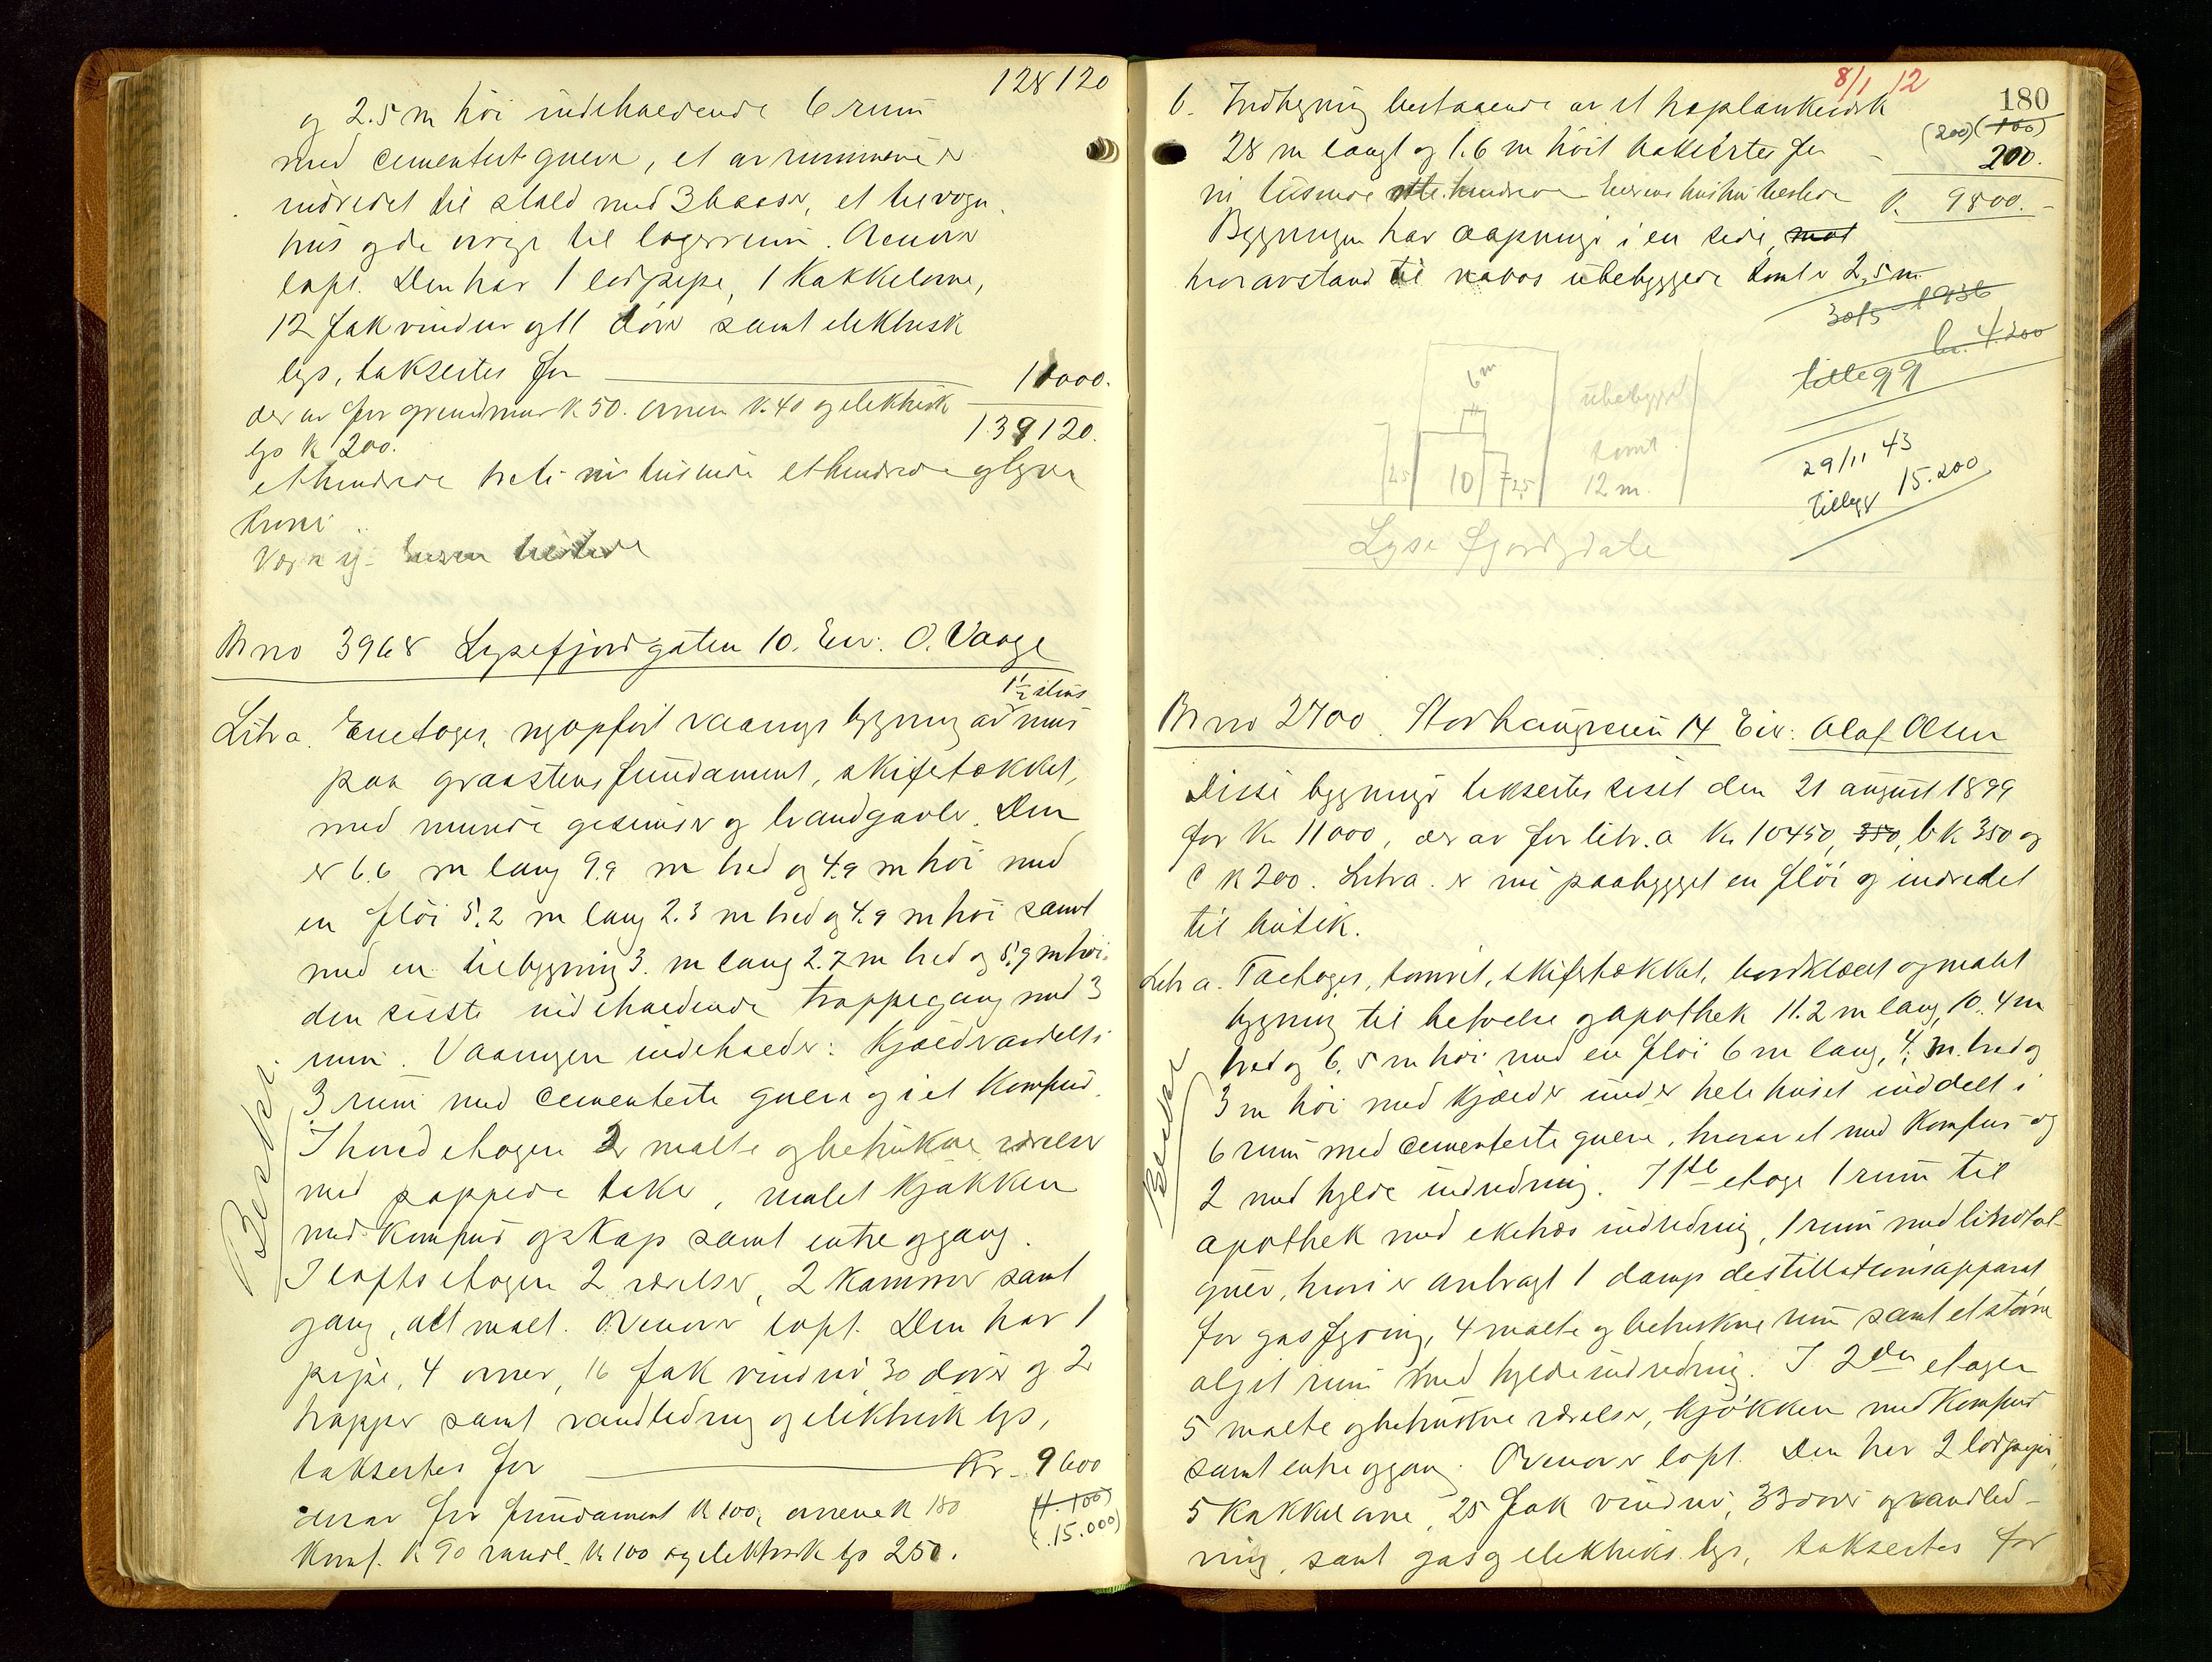 128120
og 2.5 m høi indeholdende 6 rum
med cementert gulv, et av rummene er
indredet til stald med 3 baaser, et til vogn
hus og de øvrige til lagerrum. Ovenover
loft. Den har 1 lodpipe, 1 Kakkelovn,
12 fak vinduer og 11 dører samt elektrisk
lys, taksertes for 11000.
derav for grundmur K 50. ovnen K. 40 og elektrisk
lys K 200. 139120.
ethundrede treti ni tusinde ethundrede og tyve
kroner
Br no 3968 Lysefjordgaten 10. Eier: O. Vaage
1½ stens
Litr a. Enetages, nyopført vaanings bygning av mur
paa graastensfundament, skifertækket,
med murede gesimser og brandgavle. Den
er 6.6 m lang 9.9 m bred og 4.9 m høi med
en fløi 5.2 m lang 2.3 m bred og 4.9 m høi samt
med en tilbygning 3. m lang 2.7 m bred og 5.9 m høi.
den siste indeholdende trappegang med 3
rum. Vaaningen indeholder: Kjælder avdelt i
3 rum med cementerte gulve og i et Komfur.
I hovedetagen 2 malte og betrukne værelser
med pappede taker, malet Kjøkken
med Komfur og skap samt entre og gang.
I loftsetagen 2 værelser, 2 Kammer samt
gang, alt malt. Ovenover loft. Den har 1
pipe, 4 ovner, 16 fak vinduer 30 dører og 2
trapper samt vandledning og elektrisk lys,
taksertes for Kr. 9600
derav for fundament K 100, ovnene K 180 (11.100)
Komf. K 90 vandl. K 100 og elektrisk lys 250. (15.000)
8/1 12
180
b. Indhegning bestaaende av et høplankeverk (200) (100)
28 m langt og 1.6 m høit taksertes for 200.
ni tusinde otte hundrede K. 9800.
Bygningen har aapninger i en side, mot
hvor avstand til nabos ubebyggede tomt er 2,5 m.
30/5 1936
kr. 4200
tillegg
29/11 43
Tillegg 15.200
6 m
ubebygget
tomt
12 m.
2,5
10
7
2,5
Lyse fjordgate
Br no 2700. Storhaugveien 14 Eier: Olaf Olsen
Disse bygninger taksertes sist den 21 august 1899
for Kr 11000, derav for litr. a Kr 10450, 350, b K 350 og
c K 200. Litr a. er nu paabygget en fløi og indredet
til butik.
Litr a. Toetages, tømret, skifertækket, bordklædt og malet
bygning til beboelse og apothek 11.2 m lang, 10.4 m
bred og 6.5 m høi med en fløi 6 m lang, 4. m. bred og
3 m høi med kjælder under hele huset inddelt i
6 rum med cementerte gulve, hvorav et med Komfur og
2 med hylde indredning. I 1ste etage 1 rum til
apothek med eketræs indredning, 1 rum med linotol-
gulv, hvori er anbragt 1 damp destillationsapparat
for gasfyring, 4 malte og betrukne rum samt et større
aljet rum med hyldeindredning. I 2den etagen
5 malte og betrukne værelser, kjøkken med Komfur
samt entre og gang. Ovenover loft. Den har 2 lodpiper,
5 Kakkelovne, 25 fak vinduer, 33 dører og vandled-
ning, samt gas og elektriks lys, taksertes for